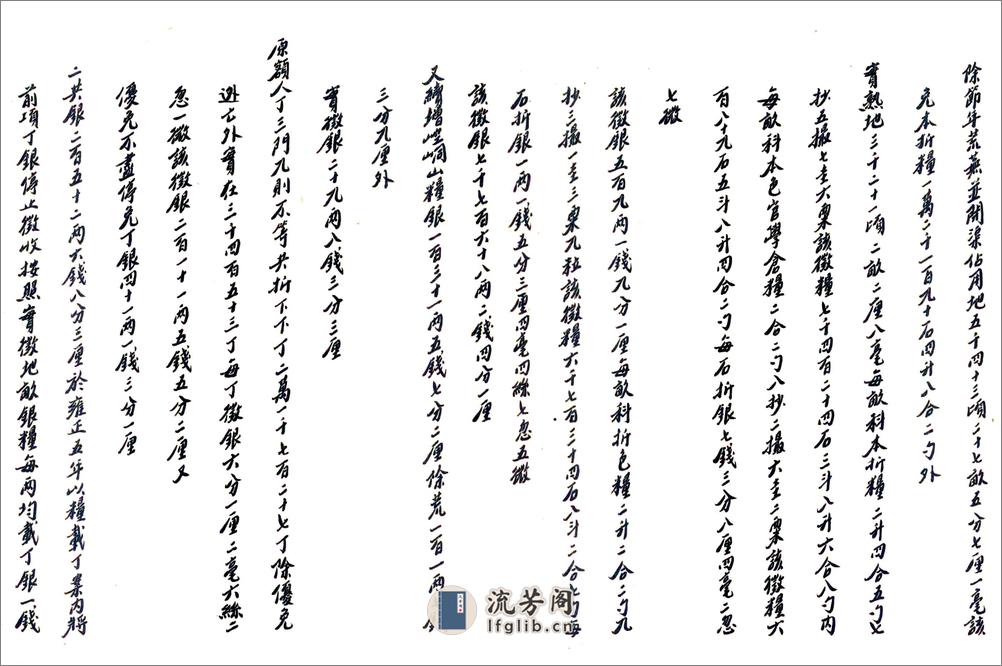 除節年荒蕪並開渠佔用地五千四十三頃二十七畝五分七厘一毫該
免本折糧一萬二千一百九十石四升八合二勺外
實熟地三千二十一頃二畝二厘八毫每畝科本折糧二升四合五勺七
抄五撮七圭六粟該徵糧七千四百二十四石三斗八升六合八勺內
每畝科本色官學倉糧二合二勺八抄二撮六圭二粟該徵糧六
百八十九石五斗八升四合二勺每石折銀七錢三分八厘四毫二忽
七微
該徵銀五百九兩一錢九分一厘每畝科折色糧二升二合二勺九
抄三撮一圭三粟九粒該徵糧六千七百三十四石八斗二合七勺每
石折銀一兩一錢五分三厘四毫四絲七忽五微
該徵銀七千七百六十八兩二錢四分一厘
又續增崆峒山糧銀一百三十一兩五錢七分二厘除荒一百一兩
三分九厘外
實徵銀二十九兩八錢三分三厘
原額人丁三門九則不等共折下下丁二萬一千七百二十七丁除優免
逃亡外實在三千四百五十三丁每丁徵銀六分一厘二毫六絲二
忽一微該徵銀二百一十一兩五錢五分二厘又
優免不盡停免丁銀四十一兩一錢三分一厘
二共銀二百五十二兩六錢八分三厘於雍正五年以糧載丁案內將
前項丁銀停止徵收按照實徵地畝銀糧每兩均載丁銀一錢
流芳閣
lfglib.cn